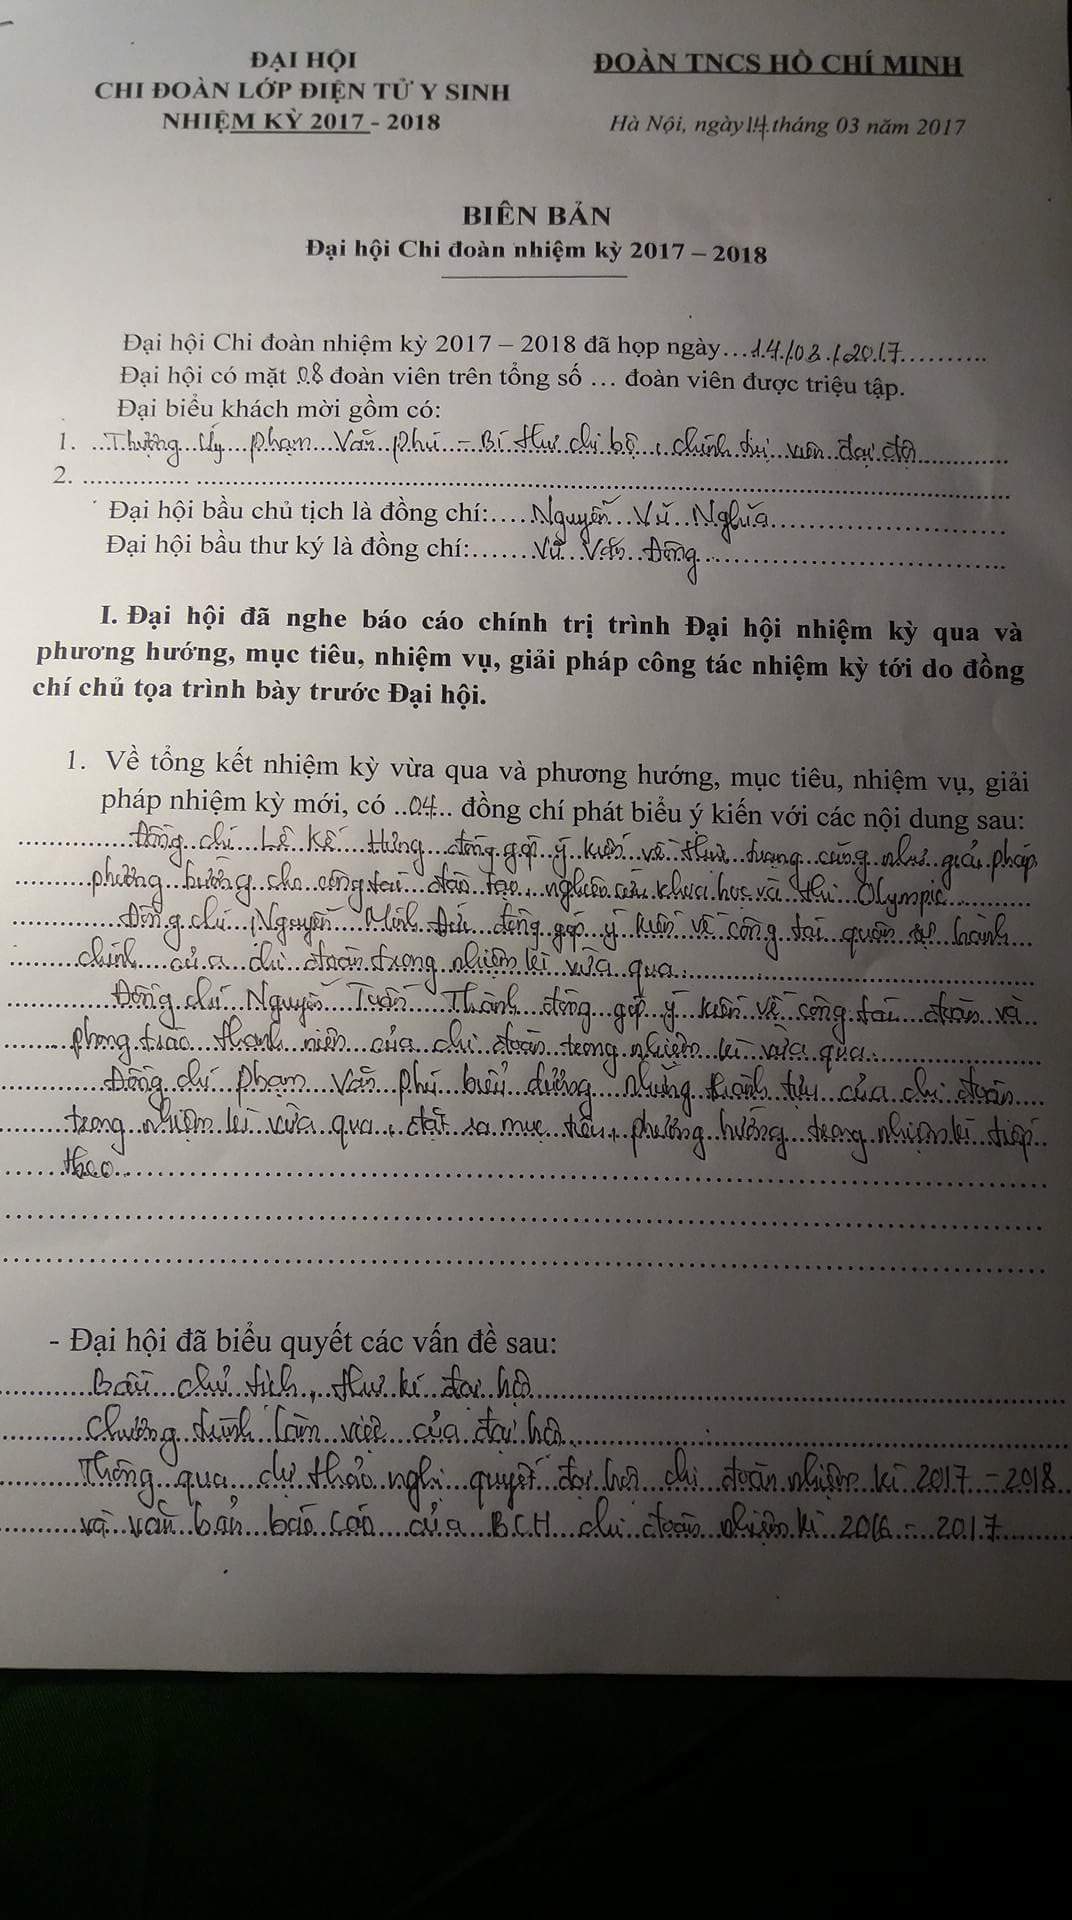 ĐẠI HỘI
CHI ĐOÀN LỚP ĐIỆN TỬ Y SINH
NHIỆM KỲ 2017 - 2018
ĐOÀN TNCS HỒ CHÍ MINH
Hà Nội, ngày 14 tháng 03 năm 2017
BIÊN BẢN
Đại hội Chi đoàn nhiệm kỳ 2017 – 2018
Đại hội Chi đoàn nhiệm kỳ 2017 – 2018 đã họp ngày...14/03/2017..........
Đại hội có mặt 08 đoàn viên trên tổng số ... đoàn viên được triệu tập.
Đại biểu khách mời gồm có:
1. Thượng úy Phạm Văn Phú - Bí thư chi bộ, chính trị viên đại đội
2.
Đại hội bầu chủ tịch là đồng chí: Nguyễn Vũ Nghĩa
Đại hội bầu thư ký là đồng chí: Vũ Văn Đông
I. Đại hội đã nghe báo cáo chính trị trình Đại hội nhiệm kỳ qua và
phương hướng, mục tiêu, nhiệm vụ, giải pháp công tác nhiệm kỳ tới do đồng
chí chủ tọa trình bày trước Đại hội.
1. Về tổng kết nhiệm kỳ vừa qua và phương hướng, mục tiêu, nhiệm vụ, giải
pháp nhiệm kỳ mới, có ..04... đồng chí phát biểu ý kiến với các nội dung sau:
Đồng chí Lê Kế Hưng đóng góp ý kiến về thực trạng cũng như giải pháp
phương hướng cho công tác đào tạo, nghiên cứu khoa học và thi Olympic
Đồng chí Nguyễn Minh Đức đóng góp ý kiến về công tác quân sự hành
chính của chi đoàn trong nhiệm kì vừa qua
Đồng chí Nguyễn Tuấn Thành đóng góp ý kiến về công tác đoàn và
phong trào thanh niên của chi đoàn trong nhiệm kì vừa qua
Đồng chí Phạm Văn Phú biểu dương những thành tựu của chi đoàn
trong nhiệm kì vừa qua, đặt ra mục tiêu, phương hướng trong nhiệm kì tiếp
theo
- Đại hội đã biểu quyết các vấn đề sau:
Bầu chủ tịch, thư kí đại hội
Chương trình làm việc của đại hội
Thông qua dự thảo nghị quyết đại hội chi đoàn nhiệm kì 2017 - 2018
và văn bản báo cáo của BCH chi đoàn nhiệm kì 2016 - 2017